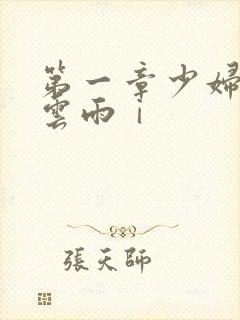 第一章少婦
雲雨｜
張天師